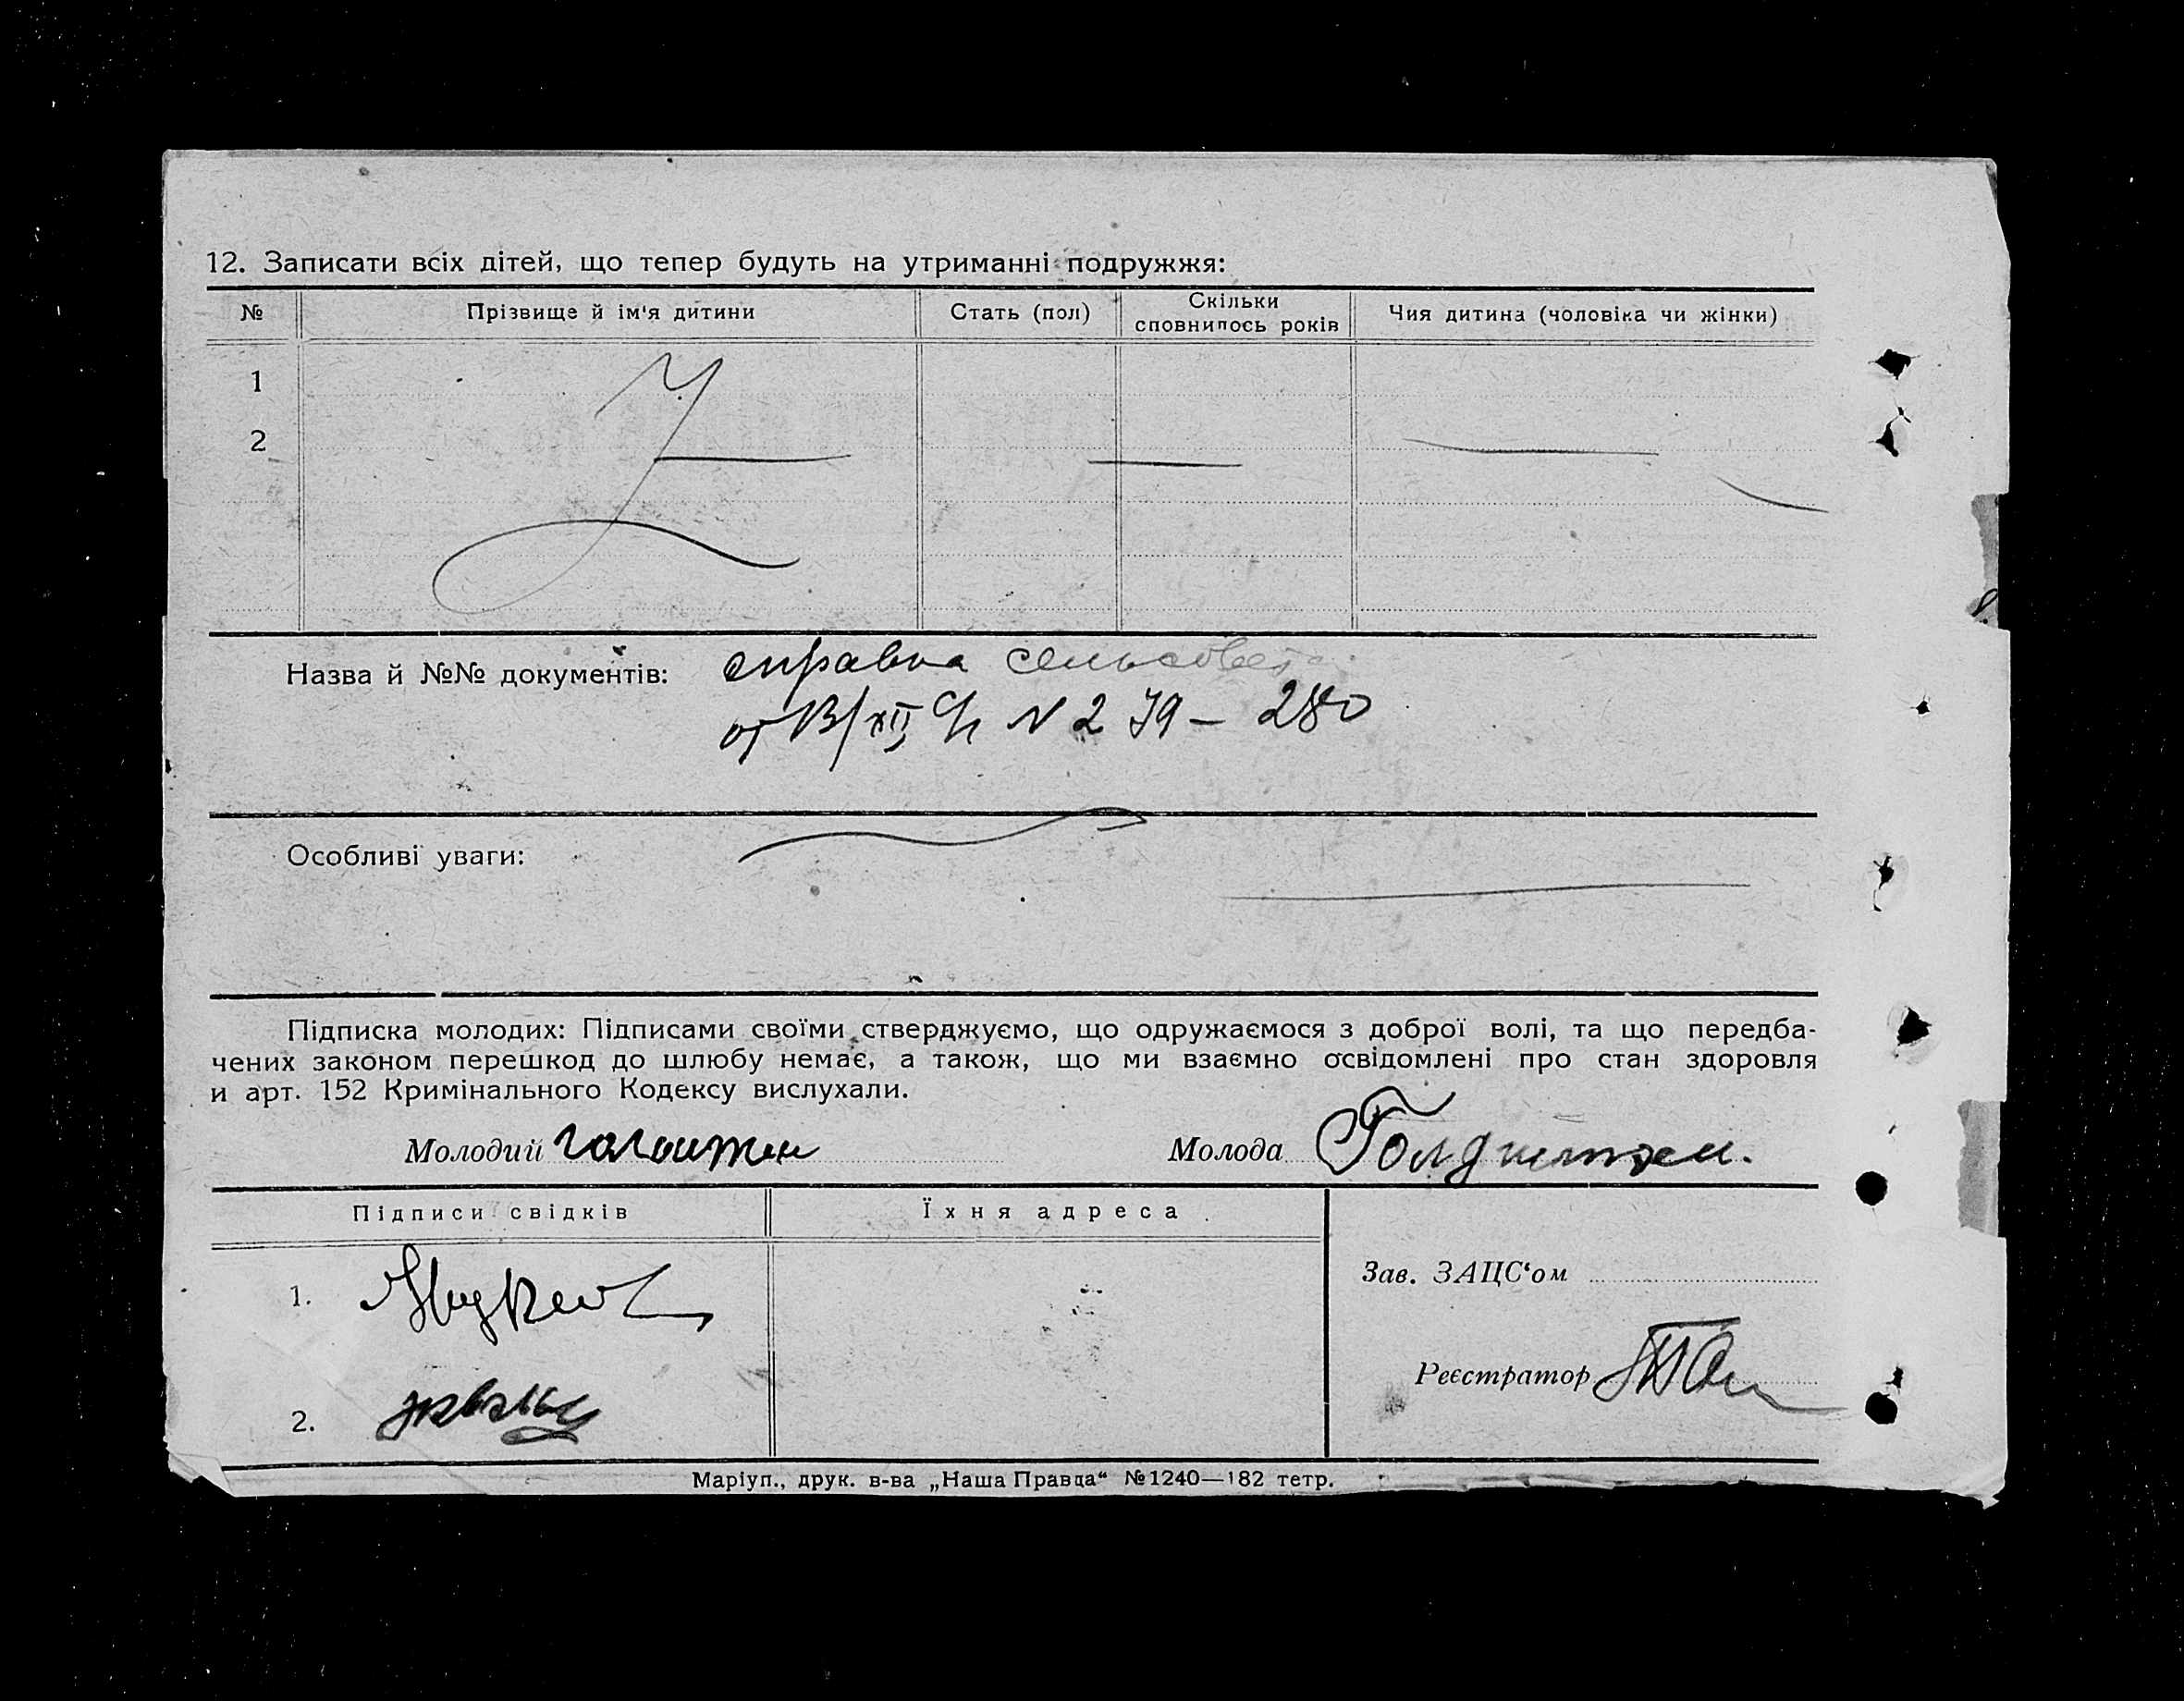 12. Записати всіх дітей, що тепер будуть на утриманні подружжя:
№ Прізвище й ім'я дитини Стать (пол) Скільки сповнилось років Чия дитина (чоловіка чи жінки)
1
2
Назва й №№ документів: справка сельсовета
от № 279 – 280
Особливі уваги:
Підписка молодих: Підписами своїми стверджуємо, що одружаємося з доброї волі, та що передба-
чених законом перешкод до шлюбу немає, а також, що ми взаємно освідомлені про стан здоровля
и арт. 152 Кримінального Кодексу вислухали.
Молодий Молода
Підписи свідків Їхня адреса
Зав. ЗАЦС'ом
1.
Реєстратор
2.
Маріуп., друк. в-ва „Наша Правда“ №1240—182 тетр.